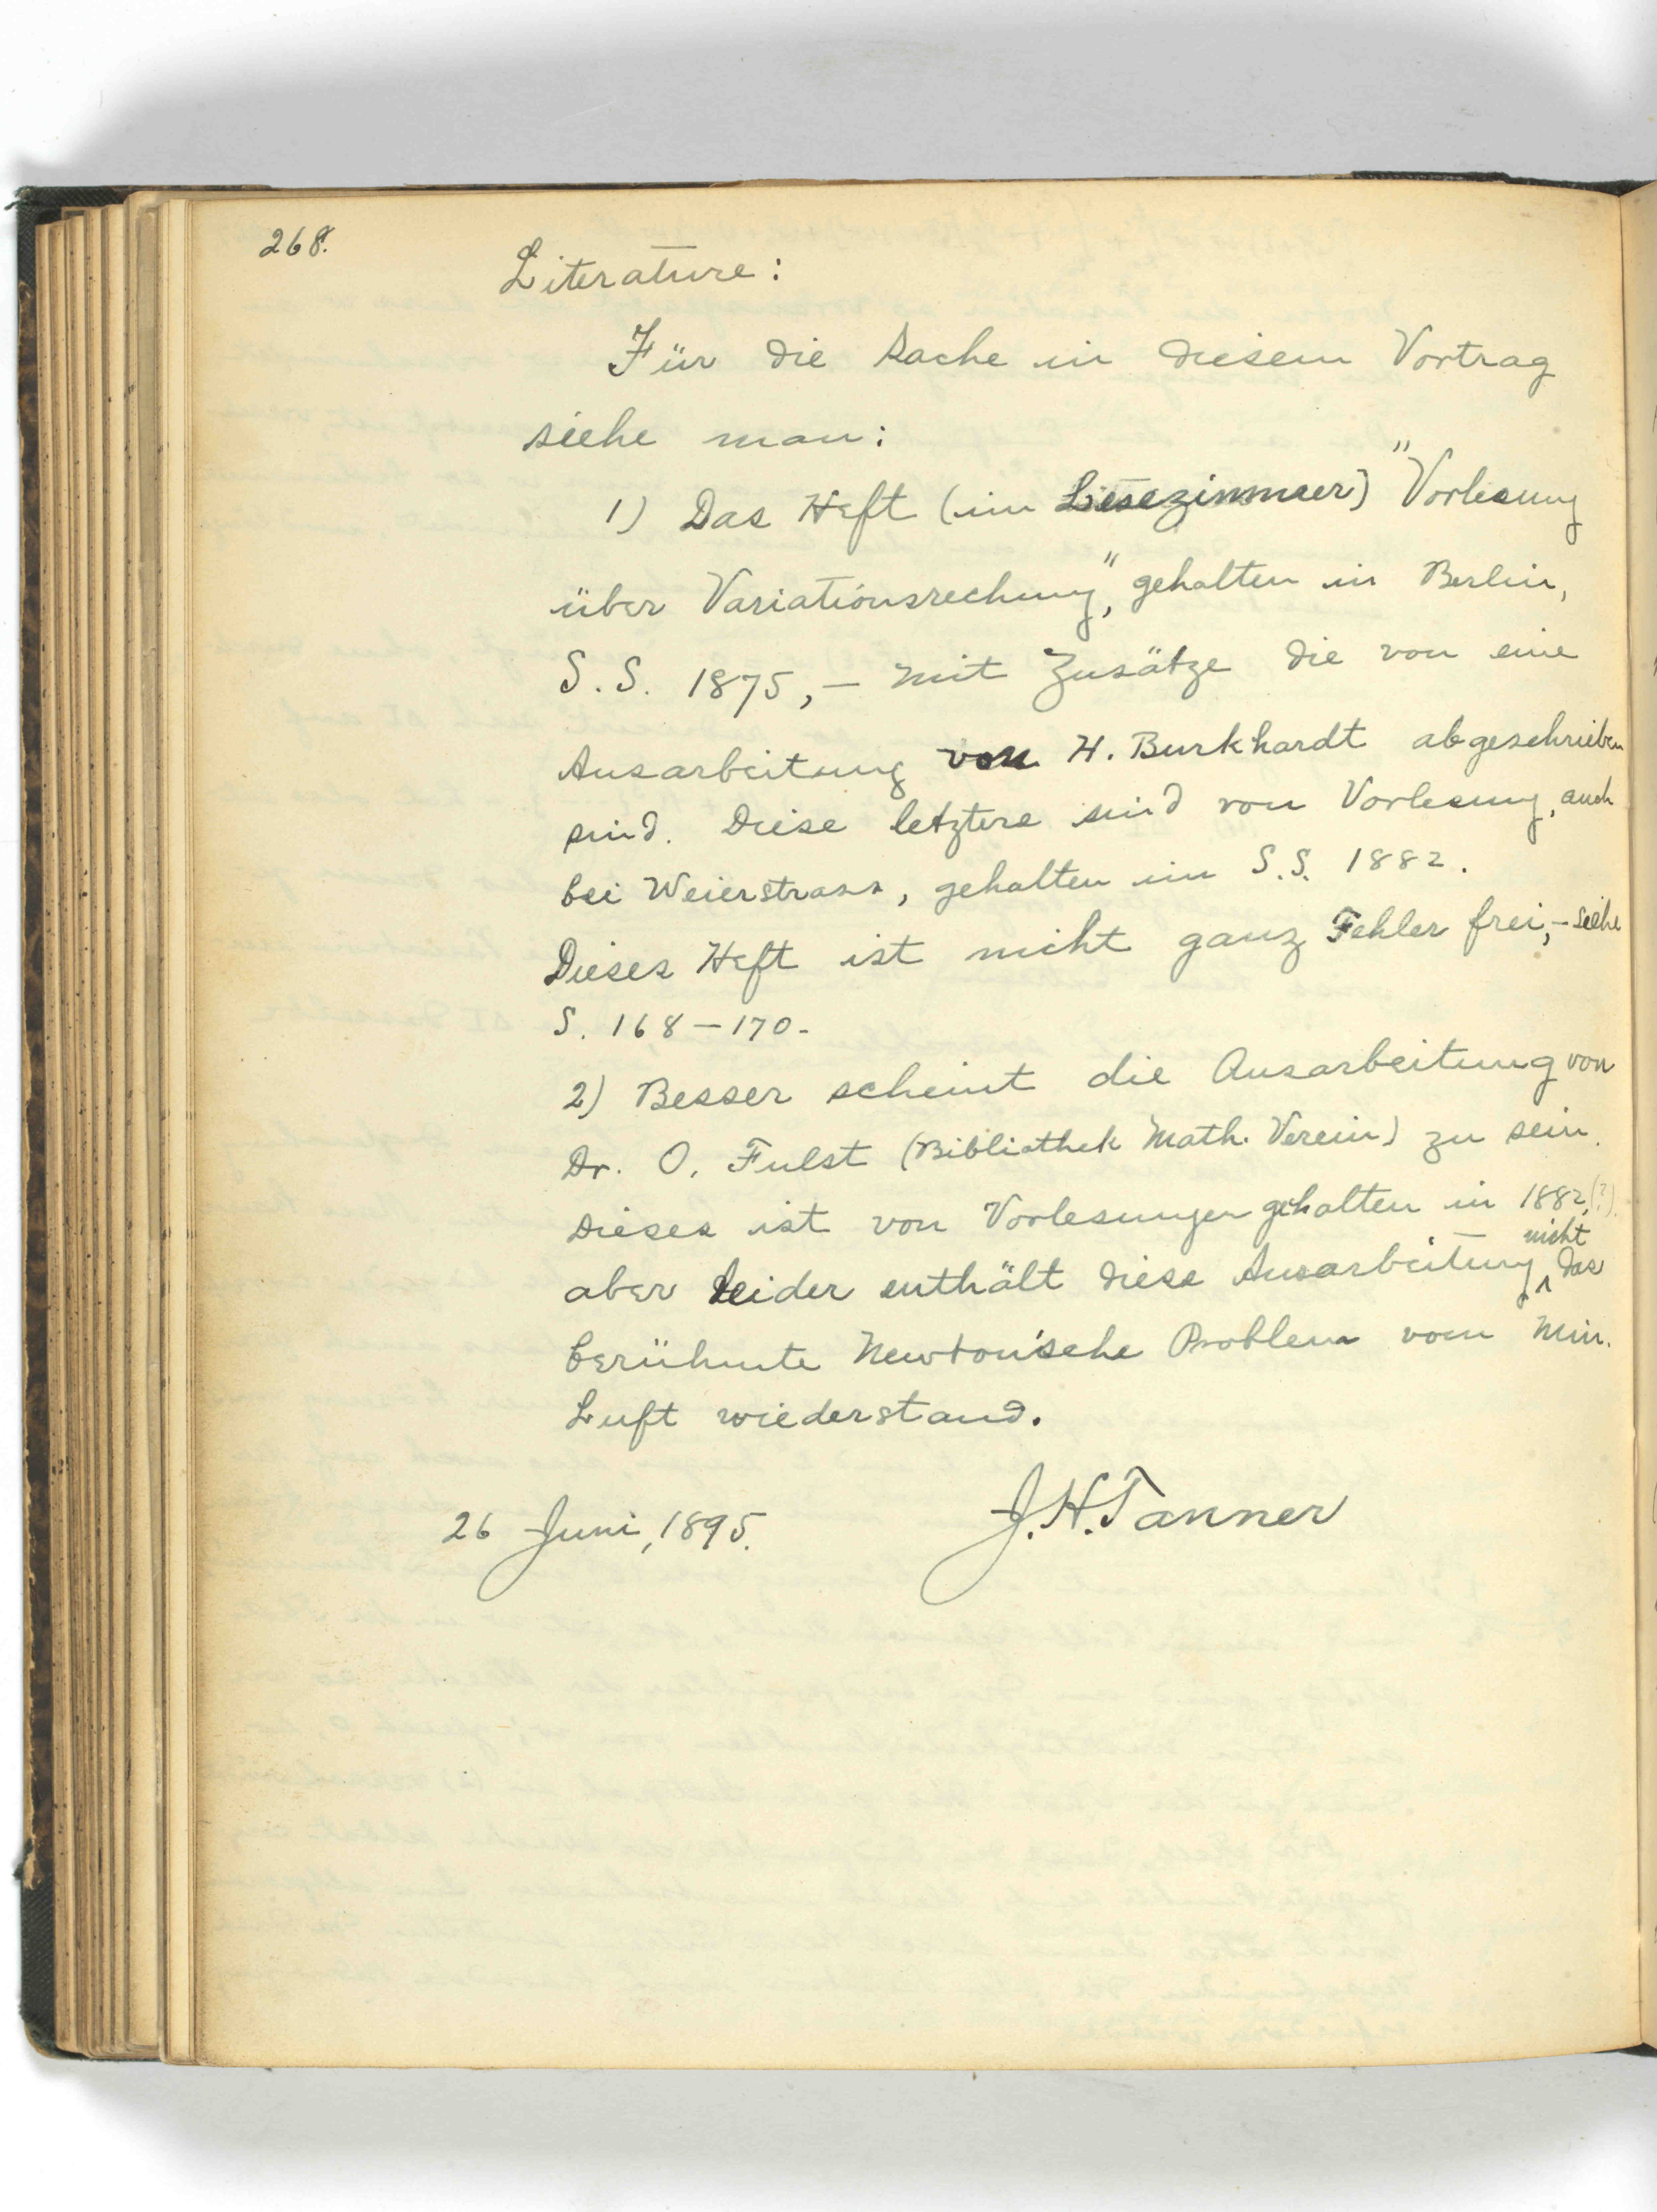 268.
Literature:
Für die Sache in diesem Vortrag
siehe man:
1) Das Heft (im Lesezimmer) "Vorlesung
über Variationsrechung", gehalten in Berlin,
S. S. 1875, – mit Zusätze die von eine
Ausarbeitung von H. Burkhardt abgeschrieben
sind. Diese letztere sind von Vorlesung, auch
bei Weierstrass, gehalten im S.S. 1882.
Dieses Heft ist nicht ganz Fehler frei, – siehe
S. 168–170.
2) Besser scheint die Ausarbeitung von
Dr. O. Fulst (Bibliothek Math. Verein) zu sein.
Dieses ist von Vorlesungen gehalten in 1882,(?).
aber leider enthält diese Ausarbeitung nicht das
berühmte Newton'sche Problem vom Min.
Luft wiederstand.
26 Juni, 1895. J. H. Tanner